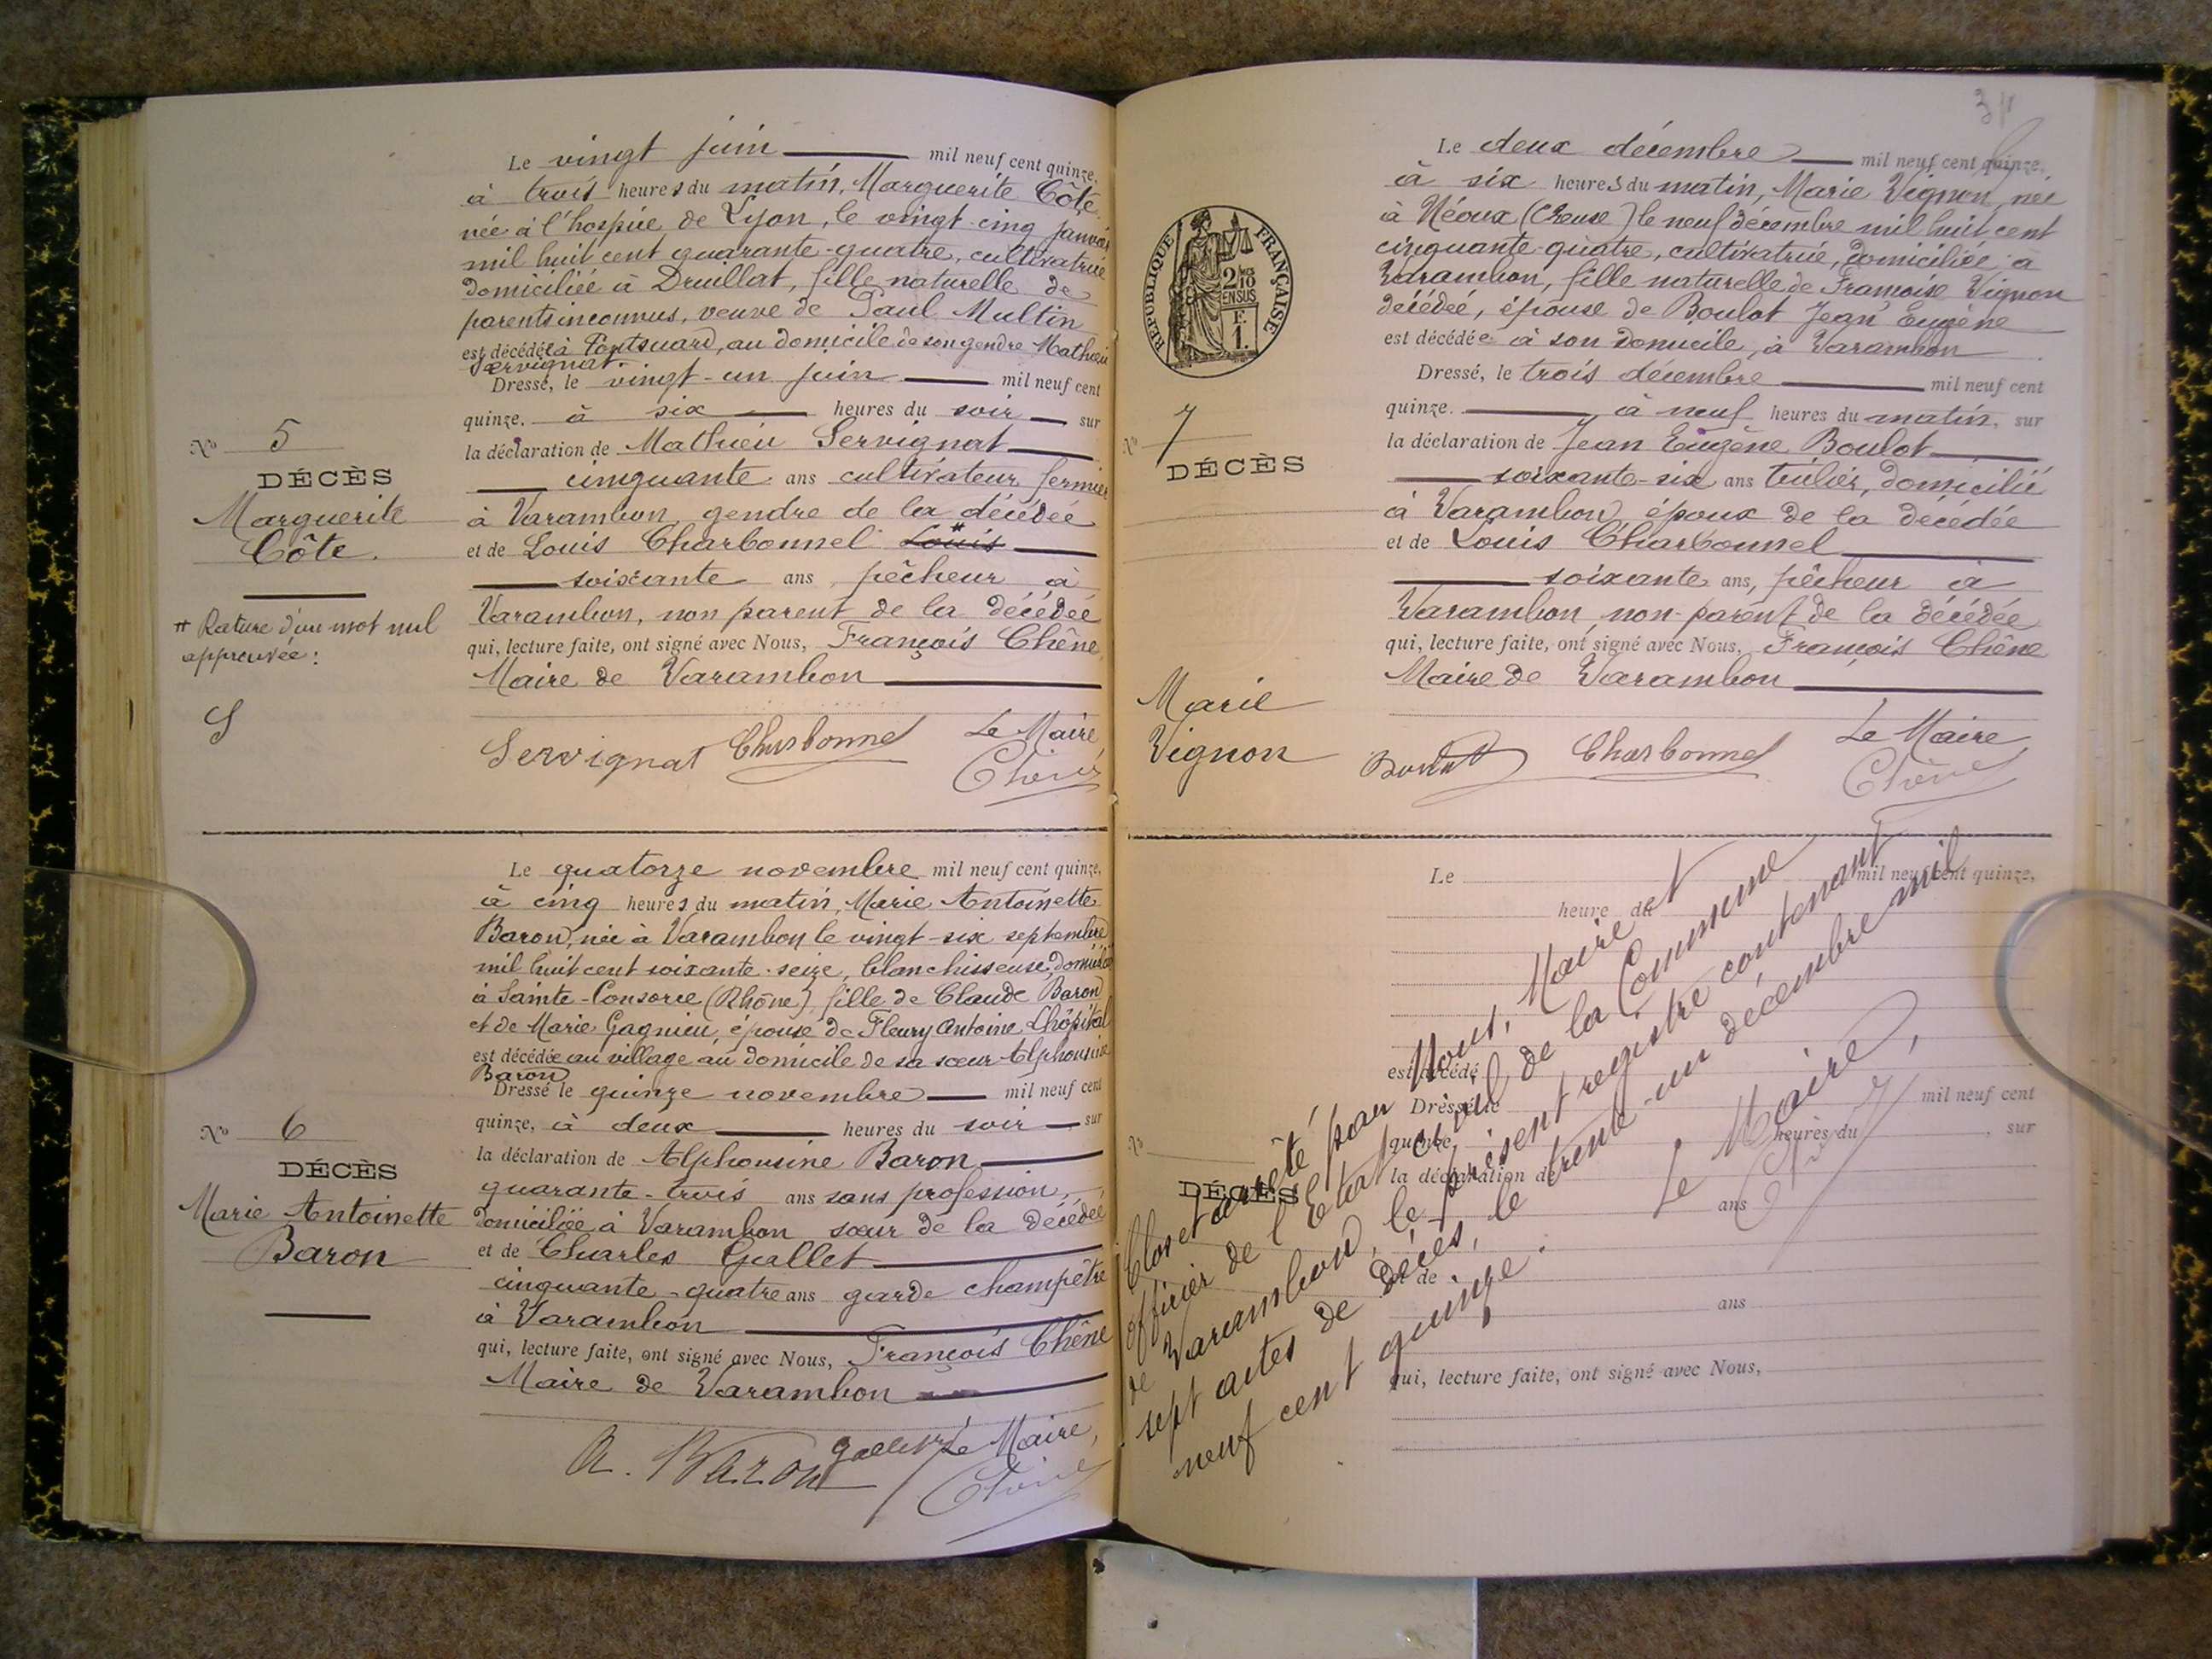 Le vingt juin mil neuf cent quinze,
à trois heures du matin, Marguerite Côte,
née à l'hospice de Lyon, le vingt-cinq janvier
mil huit cent quarante-quatre, cultivatrice
domiciliée à Druillat, fille naturelle de
parents inconnus, veuve de Paul Multin
est décédée à Pontsuard, au domicile de son gendre Mathieu
Servignat.
Dressé, le vingt-un juin mil neuf cent
quinze. à six heures du soir sur
N° 5
la déclaration de Mathieu Servignat
DÉCÈS
cinquante ans cultivateur fermier
Marguerite
à Varambon, gendre de la décédée
Côte.
et de Louis Charbonnel Louis
soixante ans, pêcheur à
# Rature d'un mot nul
Varambon, non parent de la décédée
approuvée:
qui, lecture faite, ont signé avec Nous, François Chêne
Maire de Varambon
Servignat Charbonnel Le Maire,
Chêne
Le quatorze novembre mil neuf cent quinze,
à cinq heures du matin, Marie Antoinette
Baron, née à Varambon le vingt-six septembre
mil huit cent soixante-seize, blanchisseuse,
à Sainte-Consorce (Rhône), fille de Claude Baron
et de Marie Gagnieu, épouse de Fleury Antoine Lhôpital
est décédée au village au domicile de sa sœur Alphonsine
Baron
Dressé le quinze novembre mil neuf cent
N° 6
quinze, à deux heures du soir sur
la déclaration de Alphonsine Baron
DÉCÈS
quarante-trois ans sans profession,
Marie Antoinette
domiciliée à Varambon sœur de la décédée
Baron
et de Charles Gallet
cinquante-quatre ans garde champêtre
à Varambon
qui, lecture faite, ont signé avec Nous, François Chêne
Maire de Varambon
A. Baron Le Maire,
Chêne
Le deux décembre mil neuf cent quinze,
à six heures du matin, Marie Vignon, née
à Néoux (Creuse) le neuf décembre mil huit cent
cinquante-quatre, cultivatrice, domiciliée à
Varambon, fille naturelle de Françoise Vignon
décédée, épouse de Boulot Jean Eugène
est décédée à son domicile, à Varambon
RÉPUBLIQUE FRANÇAISE
2/10 EN SUS
F. 1.
Dressé, le trois décembre mil neuf cent
quinze. à neuf heures du matin, sur
N° 7
la déclaration de Jean Eugène Boulot
DÉCÈS
soixante-six ans tuilier, domicilié
à Varambon, époux de la décédée
et de Louis Charbonnel
soixante ans, pêcheur à
Varambon, non-parent de la décédée
qui, lecture faite, ont signé avec Nous, François Chêne
Maire de Varambon
Marie
Vignon
Boulot Charbonnel Le Maire,
Chêne
Le mil neuf cent quinze,
heure du
est décédé
Dressé le mil neuf cent
quinze, heures du , sur
N°
la déclaration de
DÉCÈS
ans
et de
ans
qui, lecture faite, ont signé avec Nous,
Clos et arrêté par Nous, Maire et
officier de l'Etat civil de la Commune
de Varambon, le présent registre contenant
sept actes de décès, le trente-un décembre mil
neuf cent quinze.
Le Maire,
Chêne